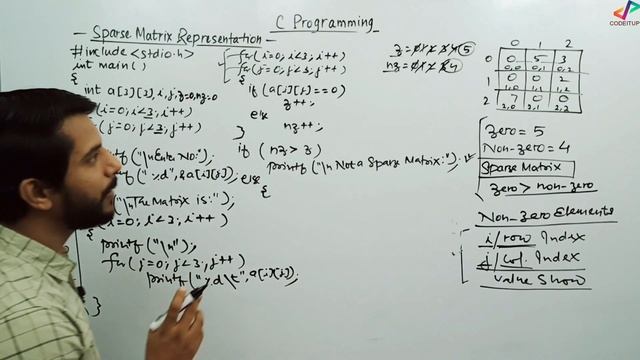 C Programming
CODEITUP
— Sparse Matrix Representation —
#include <stdio.h>
int main( )
{
int a[3][3], i, j, z=0, nz=0
(i=0; i<3; i++)
(j=0; j<3; j++)
("\nEnter No:");
("%d", &a[i][j]);
("\nThe Matrix is:");
i=0; i<3; i++)
{
printf("\n");
for (j=0; j<3; j++)
printf("%d\t", a[i][j]);
}
for(i=0; i<3; i++)
for(j=0; j<3; j++)
{
if (a[i][j]==0)
z++;
else
nz++;
}
if (nz > z)
printf("\n Not a Sparse Matrix:");
else
{
0 1 2
0 0 5 3
0,0 0,1 0,2
1 0 0 2
1,0 1,1 1,2
2 7 0 0
2,0 2,1 2,2
Zero = 5
Non-zero = 4
Sparse Matrix
Zero > non-zero
Non-Zero Elements
i/row Index
j/col. Index
value Show